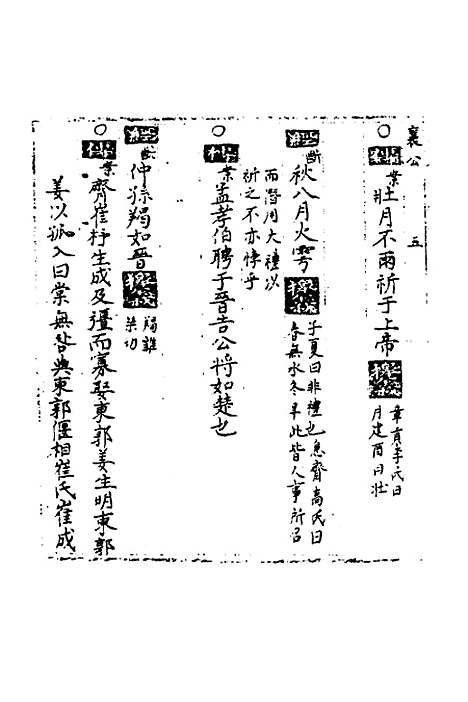 襄公 五
○ 案 壯月不雨祈于上帝 章貢李氏曰
月建酉曰壯
經 斷 秋八月大雩 子夏曰非禮也息齋高氏曰
春無冰冬旱此皆人事所召
而潛用大禮以
祈之不亦悖乎
○ 案 孟孝伯聘于晉告公將如楚也
經 斷 仲孫羯如晉 羯雞
○ 案 齊崔杼生成及彊而寡娶東郭姜生明東郭
姜以孤入曰棠無咎與東郭偃相崔氏崔成